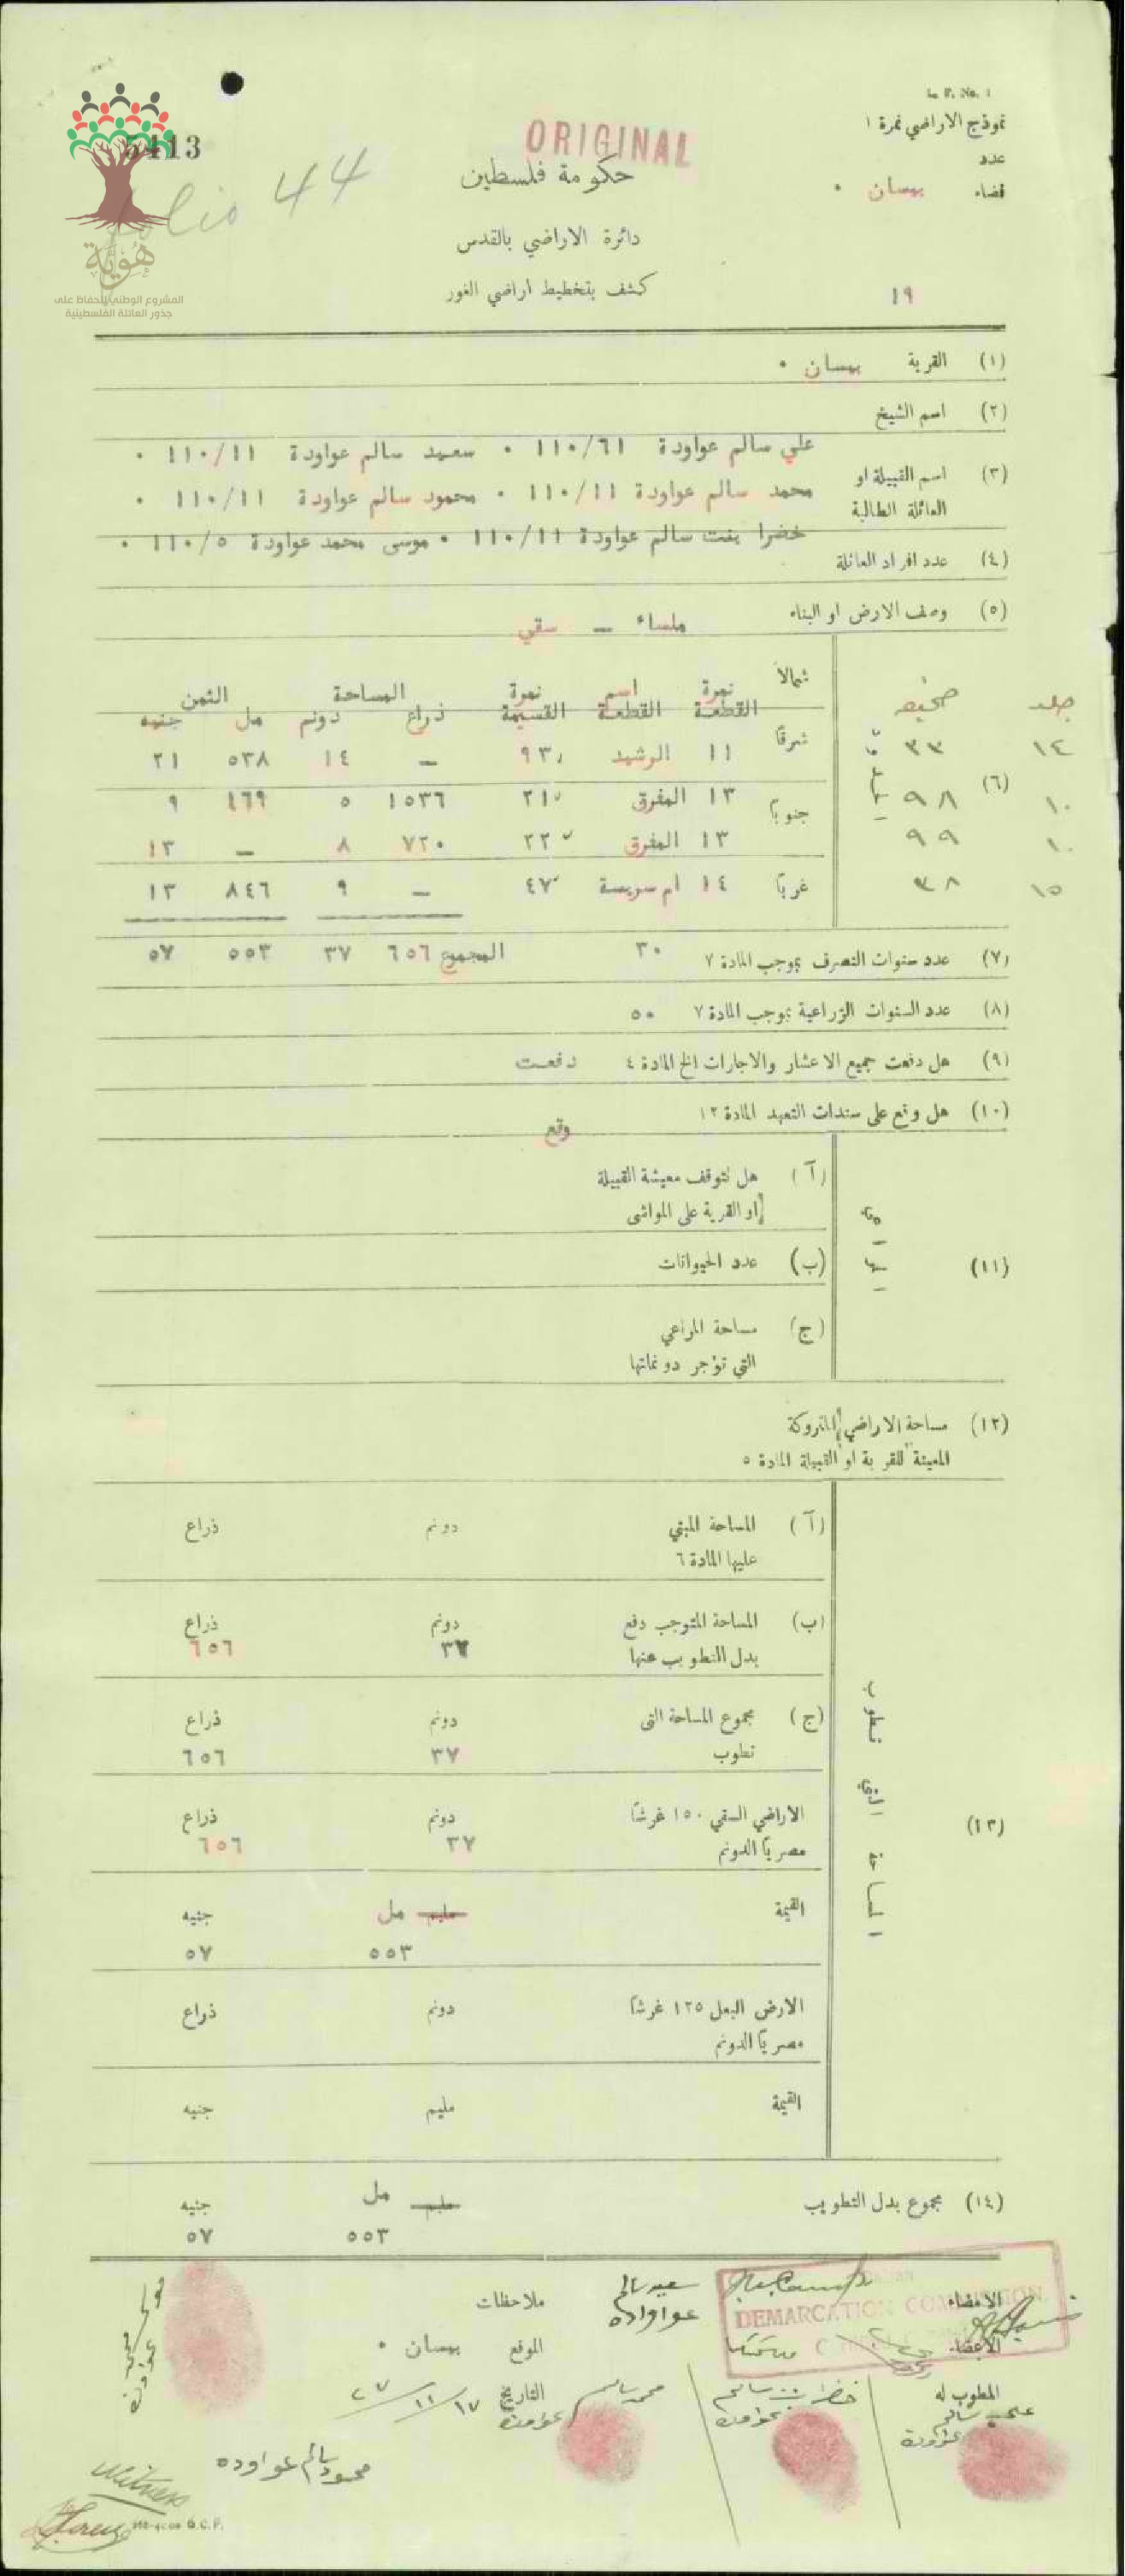 L. P. No. 1
نموذج الاراضي نمرة ١
5413
ORIGINAL
عدد
حكومة فلسطين
قضاء بيسان •
44
دائرة الاراضي بالقدس
هُوِيَّة
المشروع الوطني للحفاظ على
جذور العائلة الفلسطينية
كشف بتخطيط اراضي الغور
١٩
(١) القرية بيسان •
(٢) اسم الشيخ
علي سالم عواودة ١١٠/٦١ • سعيد سالم عواودة ١١٠/١١ •
(٣) اسم القبيلة او
العائلة الطالبة
محمد سالم عواودة ١١٠/١١ • محمود سالم عواودة ١١٠/١١ •
خضرا بنت سالم عواودة ١١٠/١١ • موسى محمد عواودة ١١٠/٥ •
(٤) عدد افراد العائلة
(٥) وصف الارض او البناء ملساء — سقي
جلد صحيفه شمالاً نمرة القطعة اسم القطعة نمرة القسيمة المساحة ذراع دونم الثمن مل جنيه
١٤ ٣٣ شرقاً ١١ الرشيد ٩٣ — ١٤ ٥٣٨ ٢١
(٦)
١٠ ٩٨ جنوباً ١٣ المفرق ٢١ ١٥٣٦ ٥ ١٦٩ ٩
١٠ ٩٩ ١٣ المفرق ٢٢ ٧٢٠ ٨ — ١٣
١٥ ٣٨ غرباً ١٤ ام سريسة ٤٧ — ٩ ٨٤٦ ١٣
المجموع ٦٥٦ ٣٧ ٥٥٣ ٥٧
(٧) عدد سنوات التصرف بموجب المادة ٧ ٣٠
(٨) عدد السنوات الزراعية بموجب المادة ٧ ٥٠
(٩) هل دفعت جميع الاعشار والاجارات الخ المادة ٤ دفعت
(١٠) هل وقع على سندات التعهد المادة ١٢ وقع
(١١)
(آ) هل تتوقف معيشة القبيلة
او القرية على المواشي
(ب) عدد الحيوانات
(ج) مساحة المراعي
التي تؤجر دونماتها
(١٢) مساحة الاراضي المتروكة
المعينة للقرية او القبيلة المادة ٥
(١٣) المساحة التي تطوب
(آ) المساحة المبني دونم ذراع
عليها المادة ٦
(ب) المساحة المتوجب دفع دونم ذراع
بدل التطويب عنها ٣٧ ٦٥٦
(ج) مجموع المساحة التي دونم ذراع
تطوب ٣٧ ٦٥٦
الاراضي السقي ١٥٠ غرشاً دونم ذراع
مصرياً الدونم ٣٧ ٦٥٦
القيمة مليم مل جنيه
٥٥٣ ٥٧
الارض البعل ١٢٥ غرشاً دونم ذراع
مصرياً الدونم
القيمة مليم جنيه
(١٤) مجموع بدل التطويب مليم مل جنيه
٥٥٣ ٥٧
الامضاء
DEMARCATION COMMISSION
سعيد سالم
عواوده
ملاحظات
الاعضاء
الموقع بيسان •
المطوب له
علي سالم
عواودة
خضرا بنت سالم
عواودة
محمد سالم
عواودة
التاريخ ١٧/١١/٢٧
محمود سالم عواوده
موسى محمد
عواودة
Witness
G.C.P.